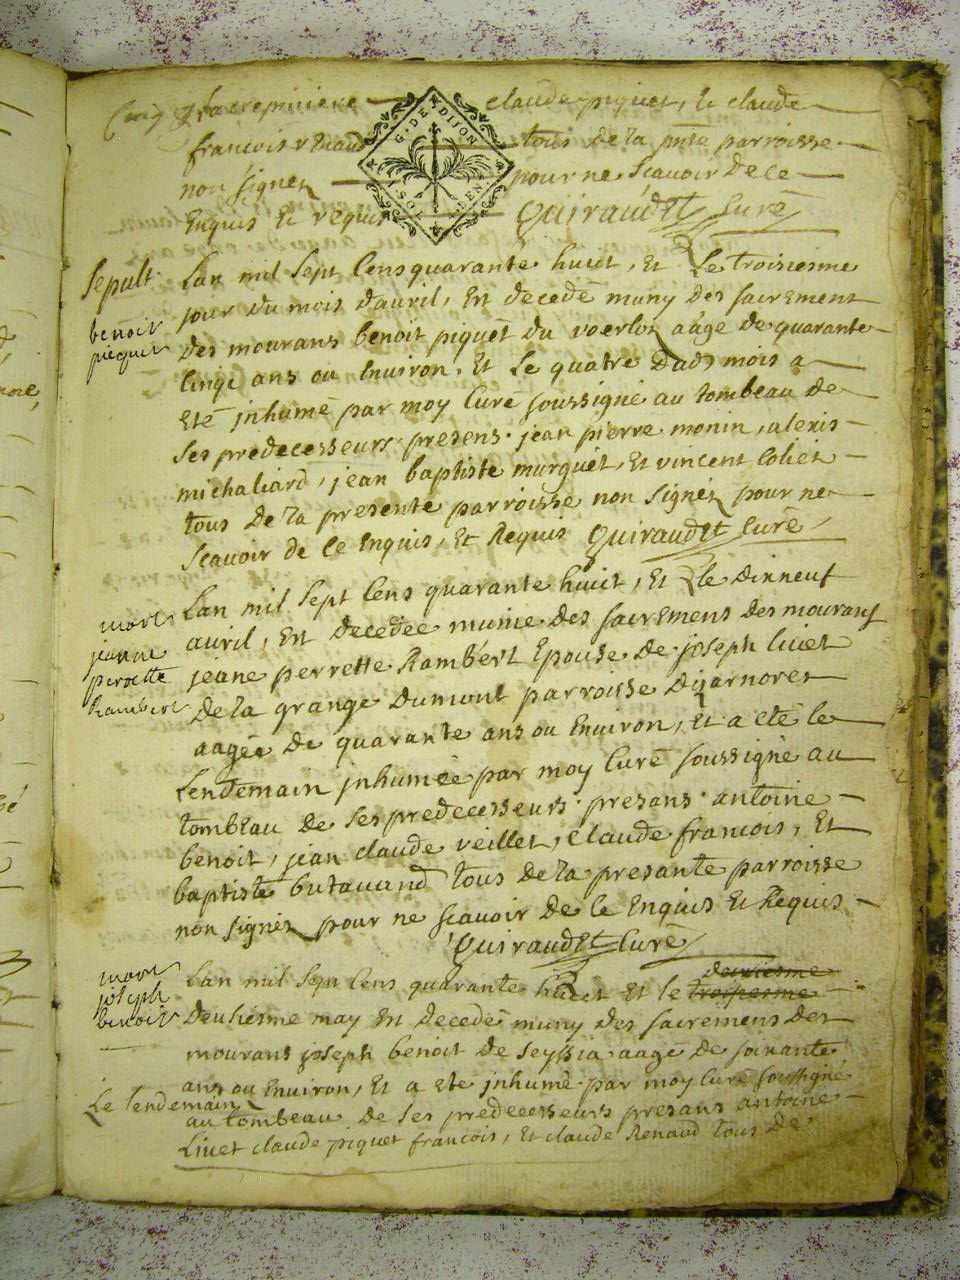 de la crepiniere claude piquet, Et claude
francois renaud tous de la pnte parroisse
non signez pour ne scavoir de ce
Enquis Et requis Quiraudet Curé
G. DE DIJON
DEN. SOLS
sepult. Lan mil sept Cens quarante huict, Et Le troisiesme
jour du mois davril, Est decedé muny des sacrement
benoit
piequet
des mourans benoit piquet du voerloz aagé de quarante
Cinqt ans ou Environ, Et Le quatre Dud mois a
Eté jnhumé par moy Curé soussigné au tombeau de
ses predecesseurs presens jean pierre monin, alexis
michaliard, jean baptiste murguet, Et vincent Coliet
tous de la presente parroisse non signez pour ne
scavoir de Ce Enquis, Et Requis Quiraudet Curé
Lan mil sept Cens quarante huict, Et Le dixneuf
mort
jeanne
perrette
Rambert
avril, Est decedée munie des sacremens des mourans
jeane perrette Rambert Epouse de joseph livet
de la grange dumont parroisse dijarnores
aagée de quarante ans ou Environ, Et a eté le
Lendemain jnhumée par moy Curé soussigné au
tombeau de ses predecesseurs presans antoine
benoit, jean claude veillet, Claude francois, Et
baptiste butavand tous de la presante parroisse
non signez pour ne scavoir de Ce Enquis Et Requis
Quiraudet Curé
mort
joseph
benoit
Lan mil sept Cens quarante huict Et le troisiesme deuxiesme
Deuxiesme may Est decedé muny des sacremens des
mourans joseph benoit de seyssia aagé de soixante
ans ou Environ, Et a eté jnhumé par moy Curé soussigné
Le lendemain
au tombeau de ses predecesseurs presans antoine
Livet claude piquet francois, Et claude Renaud tous de